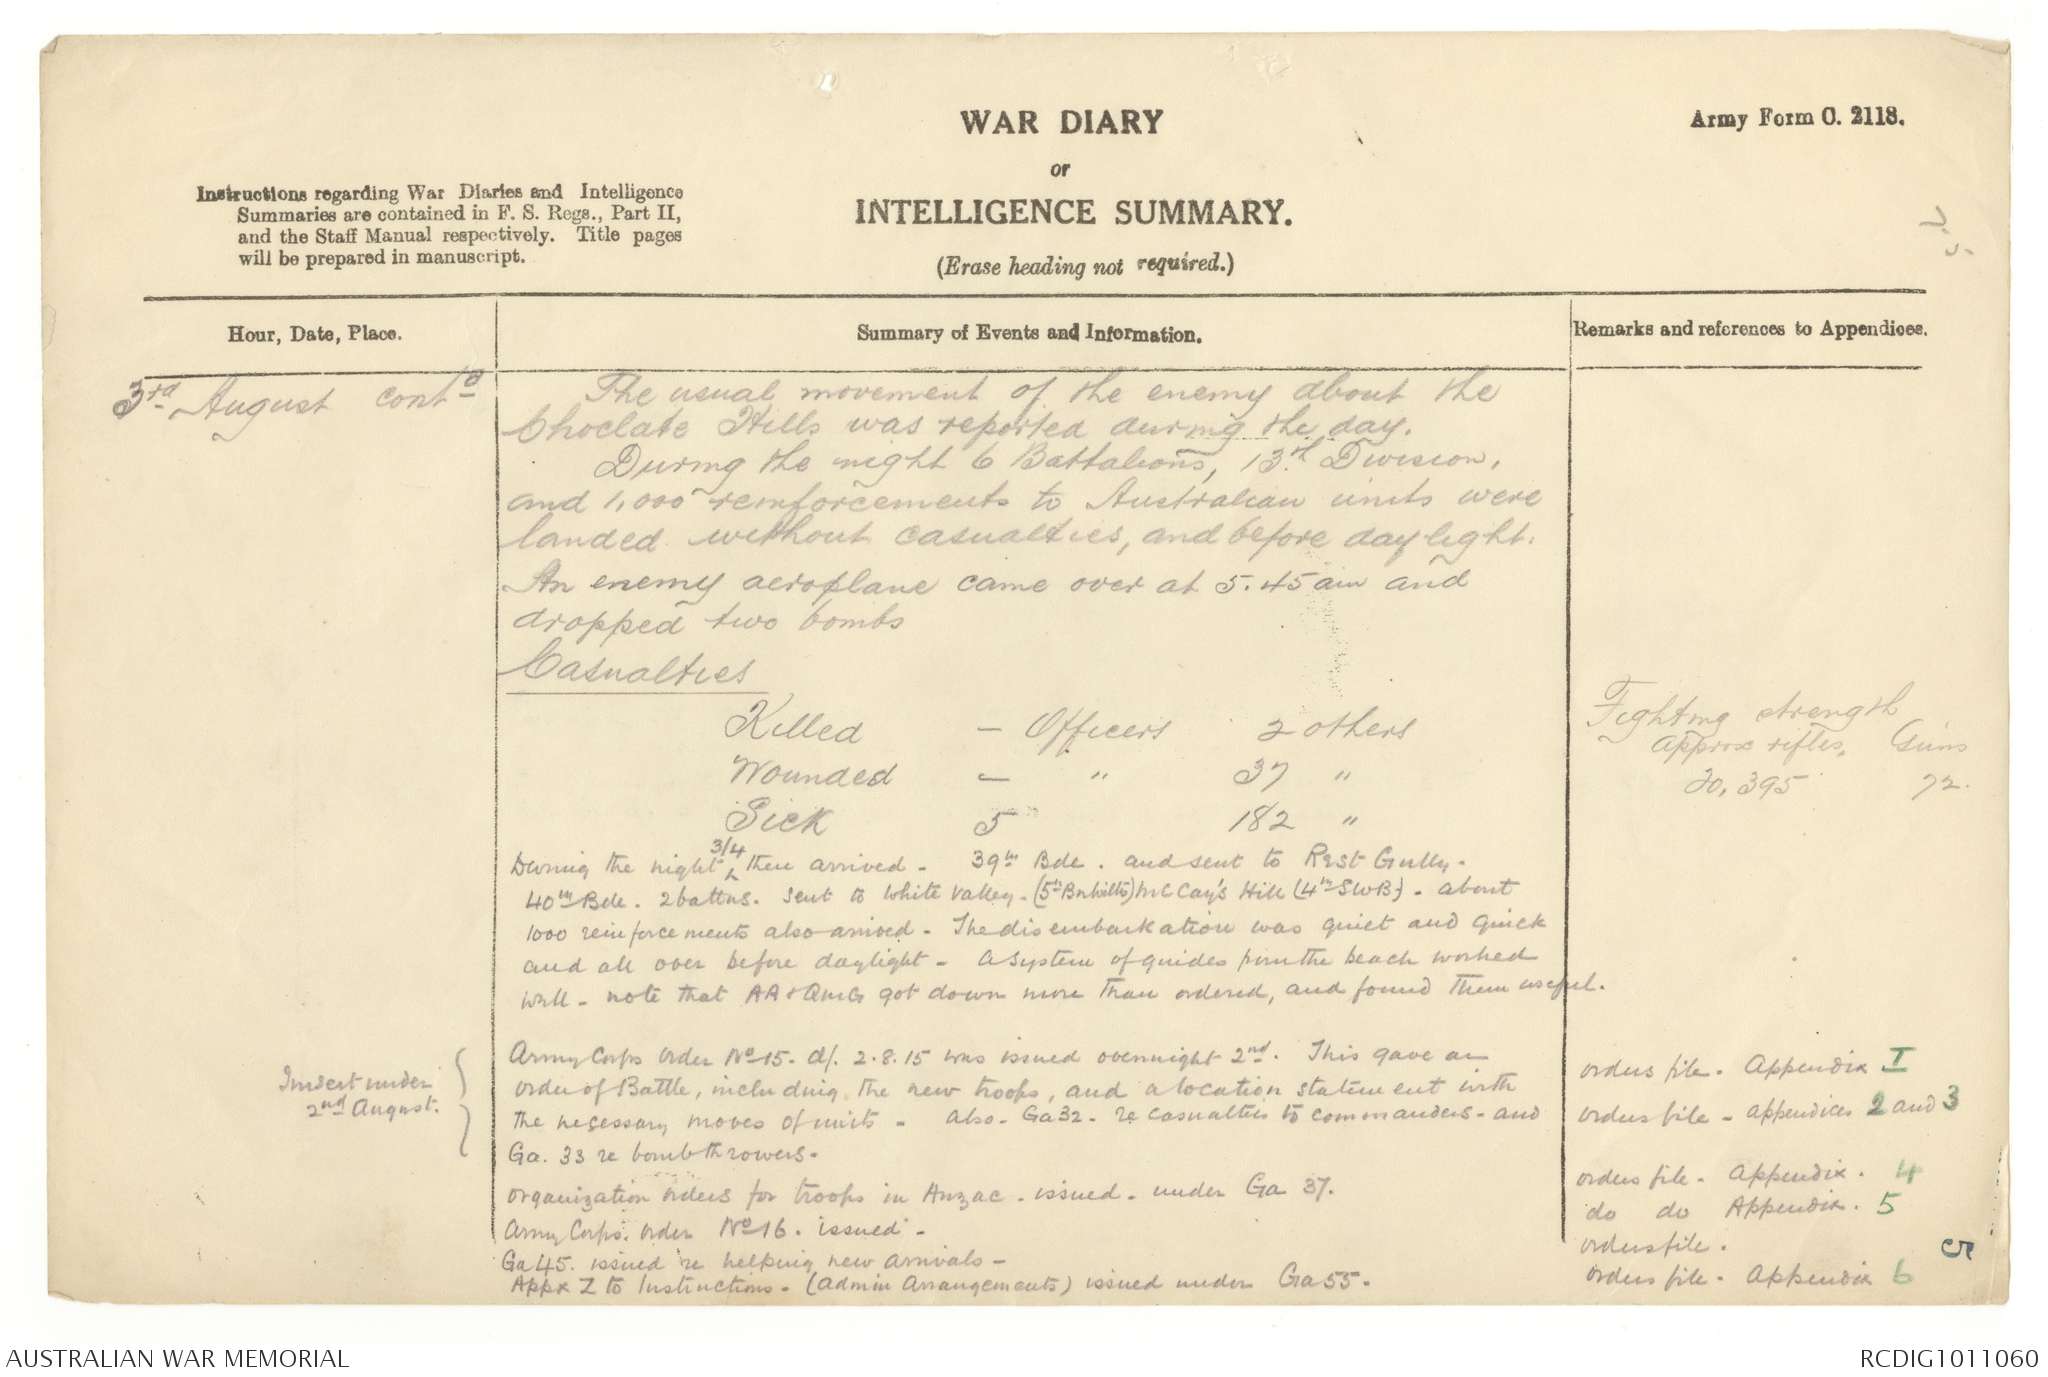 WAR DIARY
or
INTELLIGENCE SUMMARY.
(Erase heading not required.)
Army Form C. 2118.
Instructions regarding War Diaries and Intelligence
Summaries are contained in F. S. Regs., Part II,
and the Staff Manual respectively. Title pages
will be prepared in manuscript.
Hour, Date, Place.
Summary of Events and Information.
Remarks and references to Appendices.
3rd August contd
The usual movement of the enemy about the
Choclate Hills was reported during the day.
During the night 6 Battalions, 13th Division,
and 1,000 reinforcements to Australian units were
landed without casualties, and before daylight.
An enemy aeroplane came over at 5.45 am and
dropped two bombs
Casualties
Killed - Officers 2 others
Wounded - " 37 "
Sick 5 " 182 "
Fighting strength
approx rifles, Guns
20,395 72.
During the night 3/4 then arrived - 39th Bde. and sent to Rest Gully.
40th Bde. 2 battns. sent to White Valley - (5th Bn Wilts) McCay's Hill (4th SWB) - about
1000 reinforcements also arrived - The disembarkation was quiet and quick
and all over before daylight - a system of guides from the beach worked
well - note that AA & QMG got down more than ordered, and found them useful.
Insert under
2nd August.
Army Corps order No 15. d/. 2.8.15 was issued overnight 2nd. This gave an
order of Battle, including the new troops, and a location statement with
the necessary moves of units - also - Ga 32 - re casualties to commanders - and
Ga. 33 re bomb throwers.
organization orders for troops in Anzac - issued - under Ga 37.
Army Corps. order No 16. issued -
Ga 45. issued re helping new arrivals -
Appx Z to Instructions - (admin Arrangements) issued under Ga 55.
orders file. Appendix I
orders file - appendices 2 and 3
orders file - Appendix. 4
do do Appendix. 5
orders file.
5
orders file - Appendix 6
AUSTRALIAN WAR MEMORIAL
RCDIG1011060